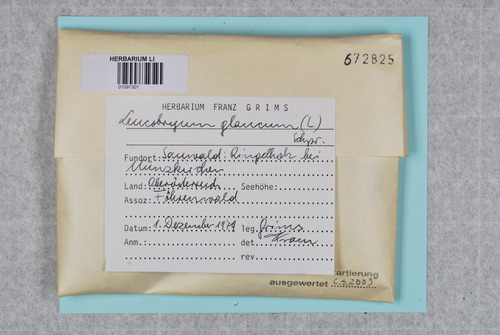 HERBARIUM LI
01597301
672825
HERBARIUM FRANZ GRIMS
Leucobryum glaucum (L)
Schpr.
Fundort: Sauwald: Ringelholz bei
Münzkirchen
Land: Oberösterreich Seehöhe:
Assoz: Föhrenwald
Datum: 1. Dezember 1979 leg. Grims
Anm.: det. Franz
rev.
artierung
ausgewertet